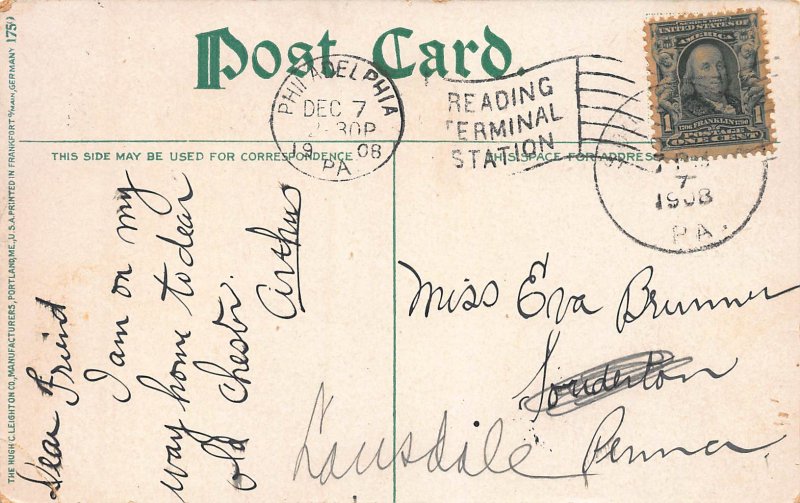 Post Card.
PHILADELPHIA
DEC 7
30P
19 08
PA
READING
TERMINAL
STATION
SERIES 1902
UNITED STATES OF
AMERICA
1 FRANKLIN 1
POSTAGE
ONE CENT
7
1908
PA.
THIS SIDE MAY BE USED FOR CORRESPONDENCE
THIS SPACE FOR ADDRESS
THE HUGH C. LEIGHTON CO., MANUFACTURERS, PORTLAND, ME., U.S.A. PRINTED IN FRANKFORT o/MAIN, GERMANY
Dear Friend
I am on my
way home to dear
old Chestr.
Arthur
Miss Eva Brunner
Souderton
Lansdale Penna